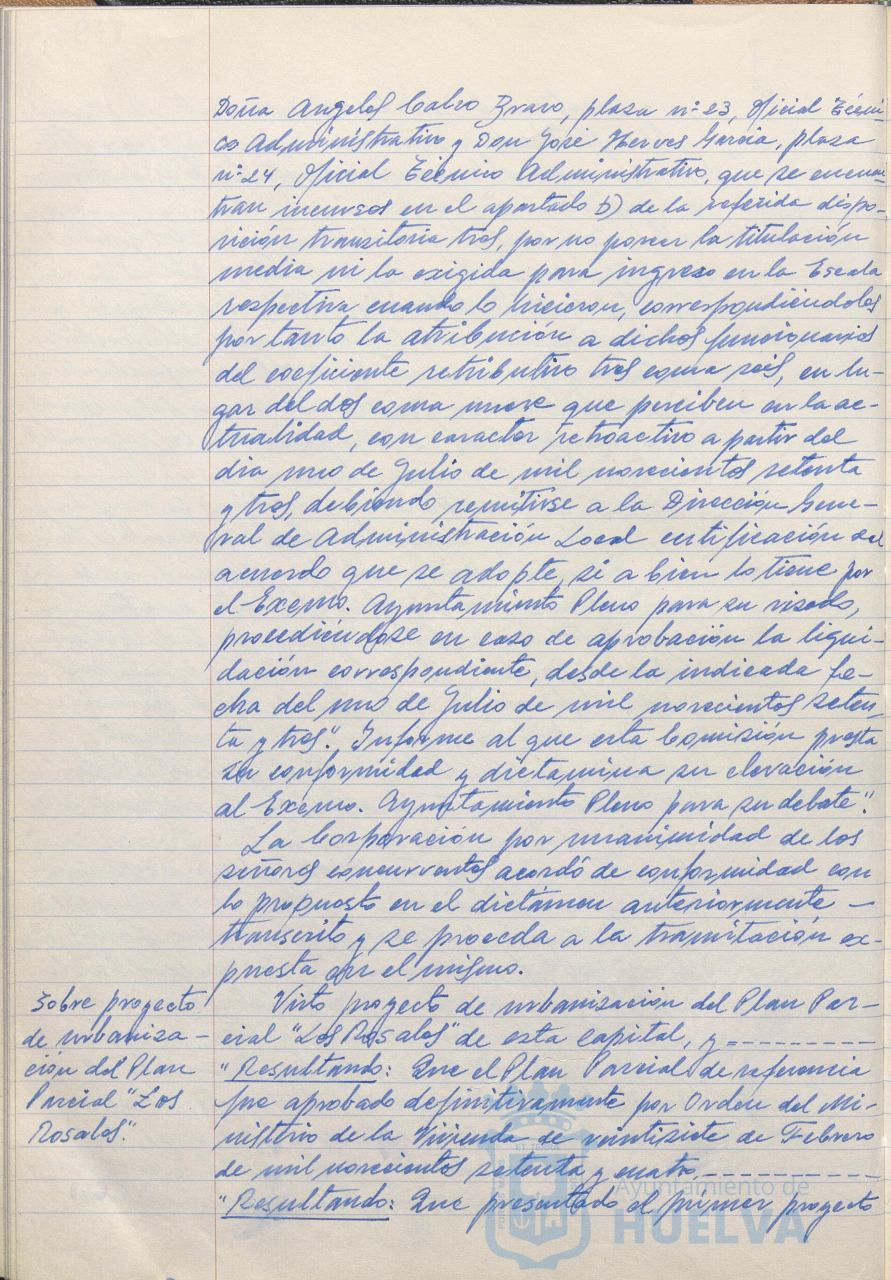 Doña Angeles Calvo Bravo, plaza nº 23, Oficial Técni-
co Administrativo y Don José Nerves Garcia, plaza
nº 24, Oficial Técnico Administrativo, que se encuen-
tran incursos en el apartado b) de la referida dispo-
sición transitoria tres, por no poseer la titulación
media ni la exigida para ingreso en la Escala
respectiva cuando lo hicieron, correspondiéndoles
por tanto la atribución a dichos funcionarios
del coeficiente retributivo tres coma seis, en lu-
gar del dos coma nueve que perciben en la ac-
tualidad, con caracter retroactivo a partir del
dia uno de Julio de mil novecientos setenta
y tres, debiendo remitirse a la Dirección Gene-
ral de Administración Local certificación del
acuerdo que se adopte, si a bien lo tiene por
el Excmo. Ayuntamiento Pleno para su visado,
procediéndose en caso de aprobación la liqui-
dación correspondiente, desde la indicada fe-
cha del uno de Julio de mil novecientos seten-
ta y tres". Informe al que esta Comisión presta
su conformidad y dictamina su elevación
al Excmo. Ayuntamiento Pleno para su debate".
La Corporación por unanimidad de los
señores concurrentes acordó de conformidad con
lo propuesto en el dictámen anteriormente —
transcrito y se proceda a la tramitación ex-
puesta en el mismo.
Sobre proyecto
de urbaniza-
ción del Plan
Parcial "Los
Rosales".
Visto proyecto de urbanización del Plan Par-
cial "Los Rosales" de esta capital, y ---------
"Resultando: Que el Plan Parcial de referencia
fue aprobado definitivamente por Orden del Mi-
nisterio de la Vivienda de veintisiete de Febrero
de mil novecientos setenta y cuatro, -----------
"Resultando: Que presentado el primer proyecto
Ayuntamiento de
HUELVA